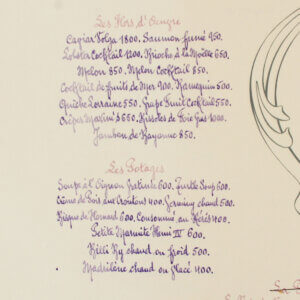 Les Hors d'Oeuvre
Caviar Volga 1800. Saumon fumé 950.
Lobster Cocktail 1200. Brioche à la Moëlle 650.
Melon 850. Melon Cocktail 850.
Cocktail de fruits de Mer 900. Kamequin 500.
Quiche Lorraine 550. Grape Fruit Cocktail 550.
Crêpes Maxim's 650. Rissoles de Foie Gras 1000.
Jambon de Bayonne 850.
Les Potages
Soupe à l'Oignon Gratinée 600. Turtle Soup 600.
Crème de Pois aux Croutons 400. Germiny chaud 500.
Bisque de Homard 600. Consommé au Xérès 400.
Petite Marmite Henri IV 600.
Billi By chaud ou froid 500.
Madrilène chaud ou glacé 400.